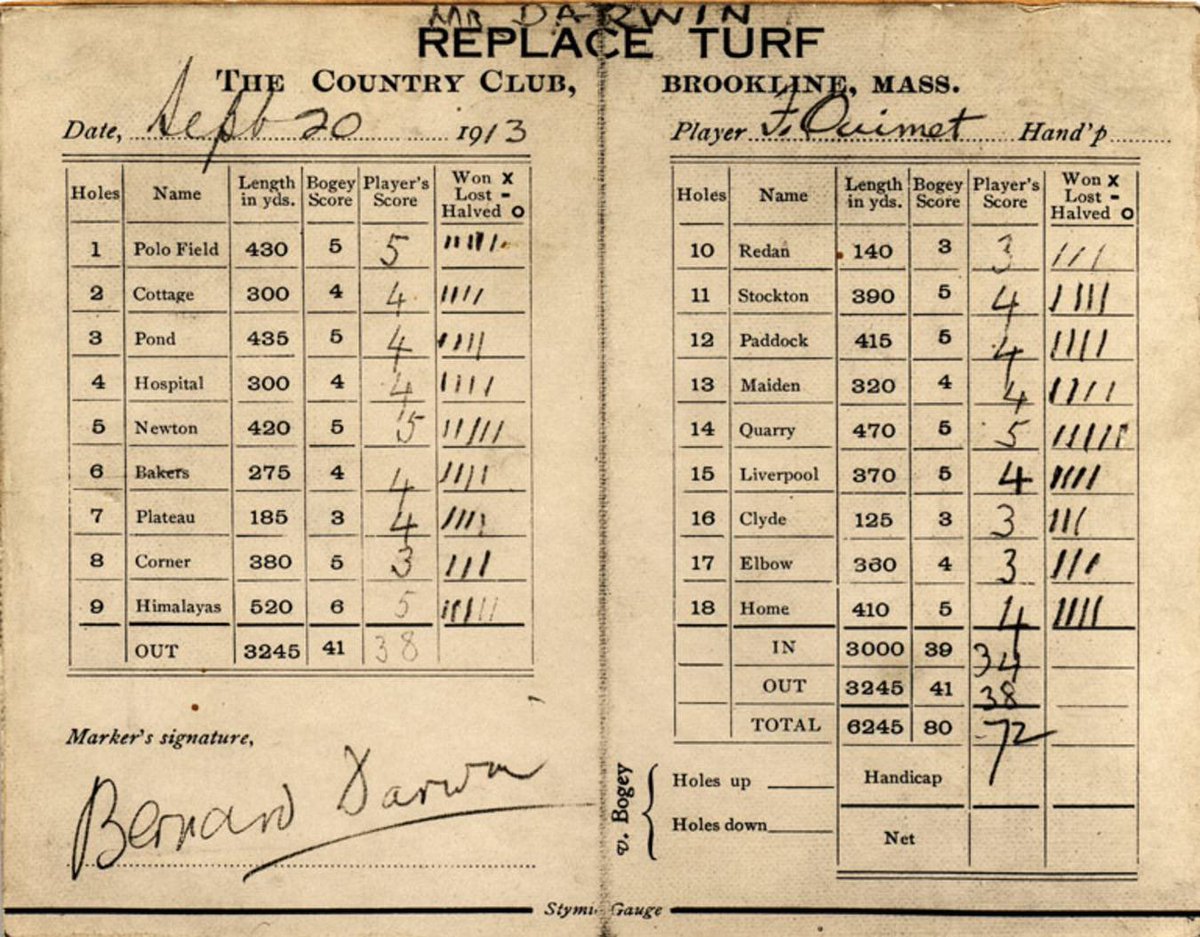 MR DARWIN
REPLACE TURF
THE COUNTRY CLUB, BROOKLINE, MASS.
Date, Sept 20 1913 Player F. Ouimet Hand'p
Holes Name Length in yds. Bogey Score Player's Score Won X Lost - Halved O
1 Polo Field 430 5 5
2 Cottage 300 4 4
3 Pond 435 5 4
4 Hospital 300 4 4
5 Newton 420 5 5
6 Bakers 275 4 4
7 Plateau 185 3 4
8 Corner 380 5 3
9 Himalayas 520 6 5
OUT 3245 41 38
Marker's signature,
Bernard Darwin
Holes Name Length in yds. Bogey Score Player's Score Won X Lost - Halved O
10 Redan 140 3 3
11 Stockton 390 5 4
12 Paddock 415 5 4
13 Maiden 320 4 4
14 Quarry 470 5 5
15 Liverpool 370 5 4
16 Clyde 125 3 3
17 Elbow 360 4 3
18 Home 410 5 4
IN 3000 39 34
OUT 3245 41 38
TOTAL 6245 80 72
v. Bogey
Holes up Handicap
Holes down
Net
Stymie Gauge